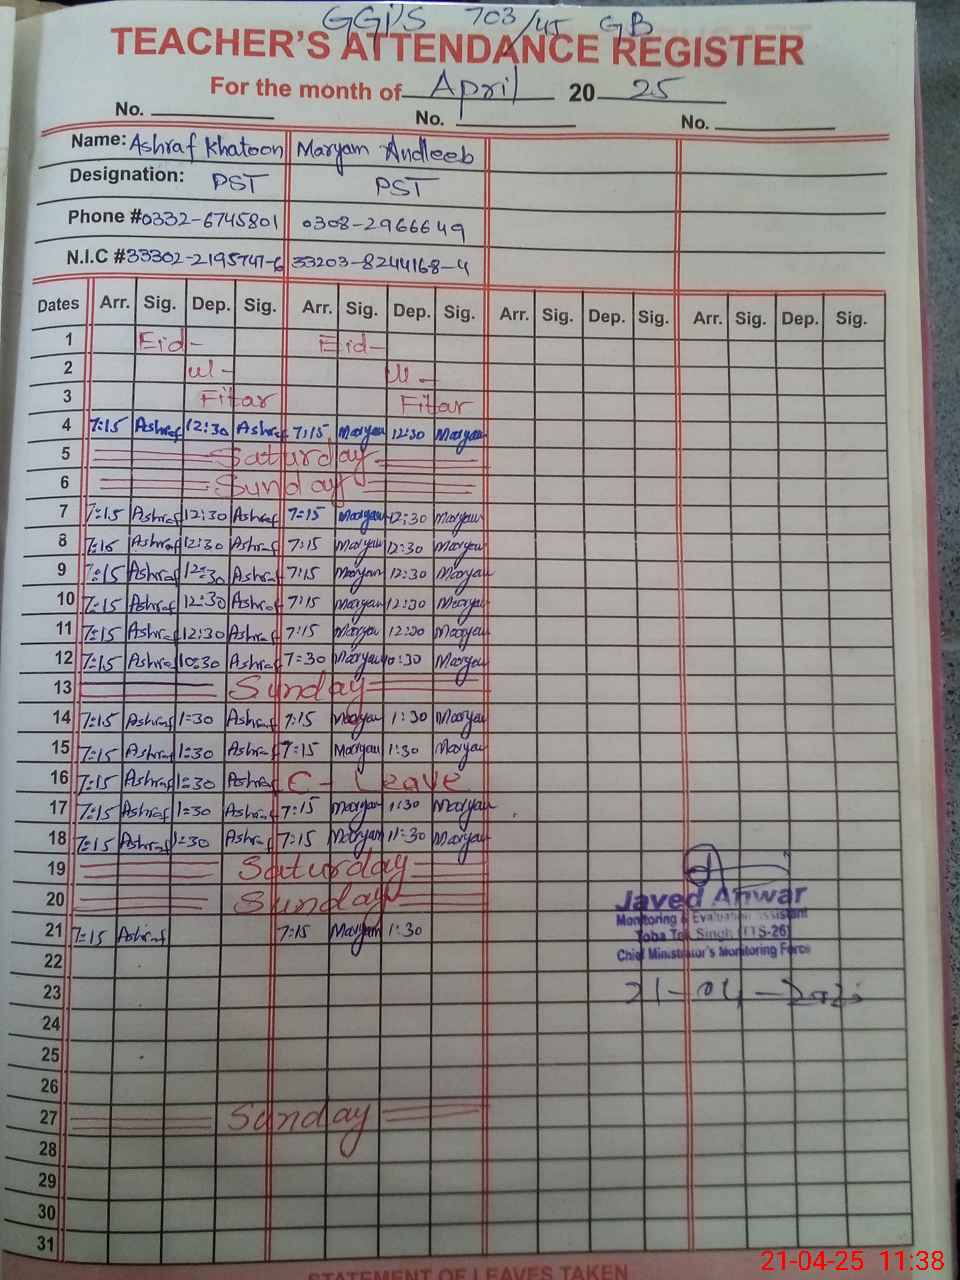 GGPS 703/45 GB
TEACHER'S ATTENDANCE REGISTER
For the month of April 20 25
No. No. No.
Name: Ashraf Khatoon Maryam Andleeb
Designation: PST PST
Phone #0332-6745801 0308-2966649
N.I.C #33302-2195747-6 33203-8244168-4
Dates Arr. Sig. Dep. Sig. Arr. Sig. Dep. Sig. Arr. Sig. Dep. Sig. Arr. Sig. Dep. Sig.
1 Eid- Eid-
2 ul- ul-
3 Fitar Fitar
4 7:15 Ashraf 12:30 Ashraf 7:15 Maryam 12:30 Maryam
5 Saturday
6 Sunday
7 7:15 Ashraf 12:30 Ashraf 7:15 Maryam 12:30 Maryam
8 7:15 Ashraf 12:30 Ashraf 7:15 Maryam 12:30 Maryam
9 7:15 Ashraf 12:30 Ashraf 7:15 Maryam 12:30 Maryam
10 7:15 Ashraf 12:30 Ashraf 7:15 Maryam 12:30 Maryam
11 7:15 Ashraf 12:30 Ashraf 7:15 Maryam 12:30 Maryam
12 7:15 Ashraf 10:30 Ashraf 7:30 Maryam 10:30 Maryam
13 Sunday
14 7:15 Ashraf 1:30 Ashraf 7:15 Maryam 1:30 Maryam
15 7:15 Ashraf 1:30 Ashraf 7:15 Maryam 1:30 Maryam
16 7:15 Ashraf 1:30 Ashraf C- Leave
17 7:15 Ashraf 1:30 Ashraf 7:15 Maryam 1:30 Maryam
18 7:15 Ashraf 1:30 Ashraf 7:15 Maryam 11:30 Maryam
19 Saturday
20 Sunday
21 7:15 Ashraf 7:15 Maryam 1:30
Javed Anwar
Monitoring & Evaluation Assistant
Toba Tek Singh (TTS-26)
Chief Minister's Monitoring Force
22
23
21-04-2025
24
25
26
27 Sunday
28
29
30
31
STATEMENT OF LEAVES TAKEN
21-04-25 11:38